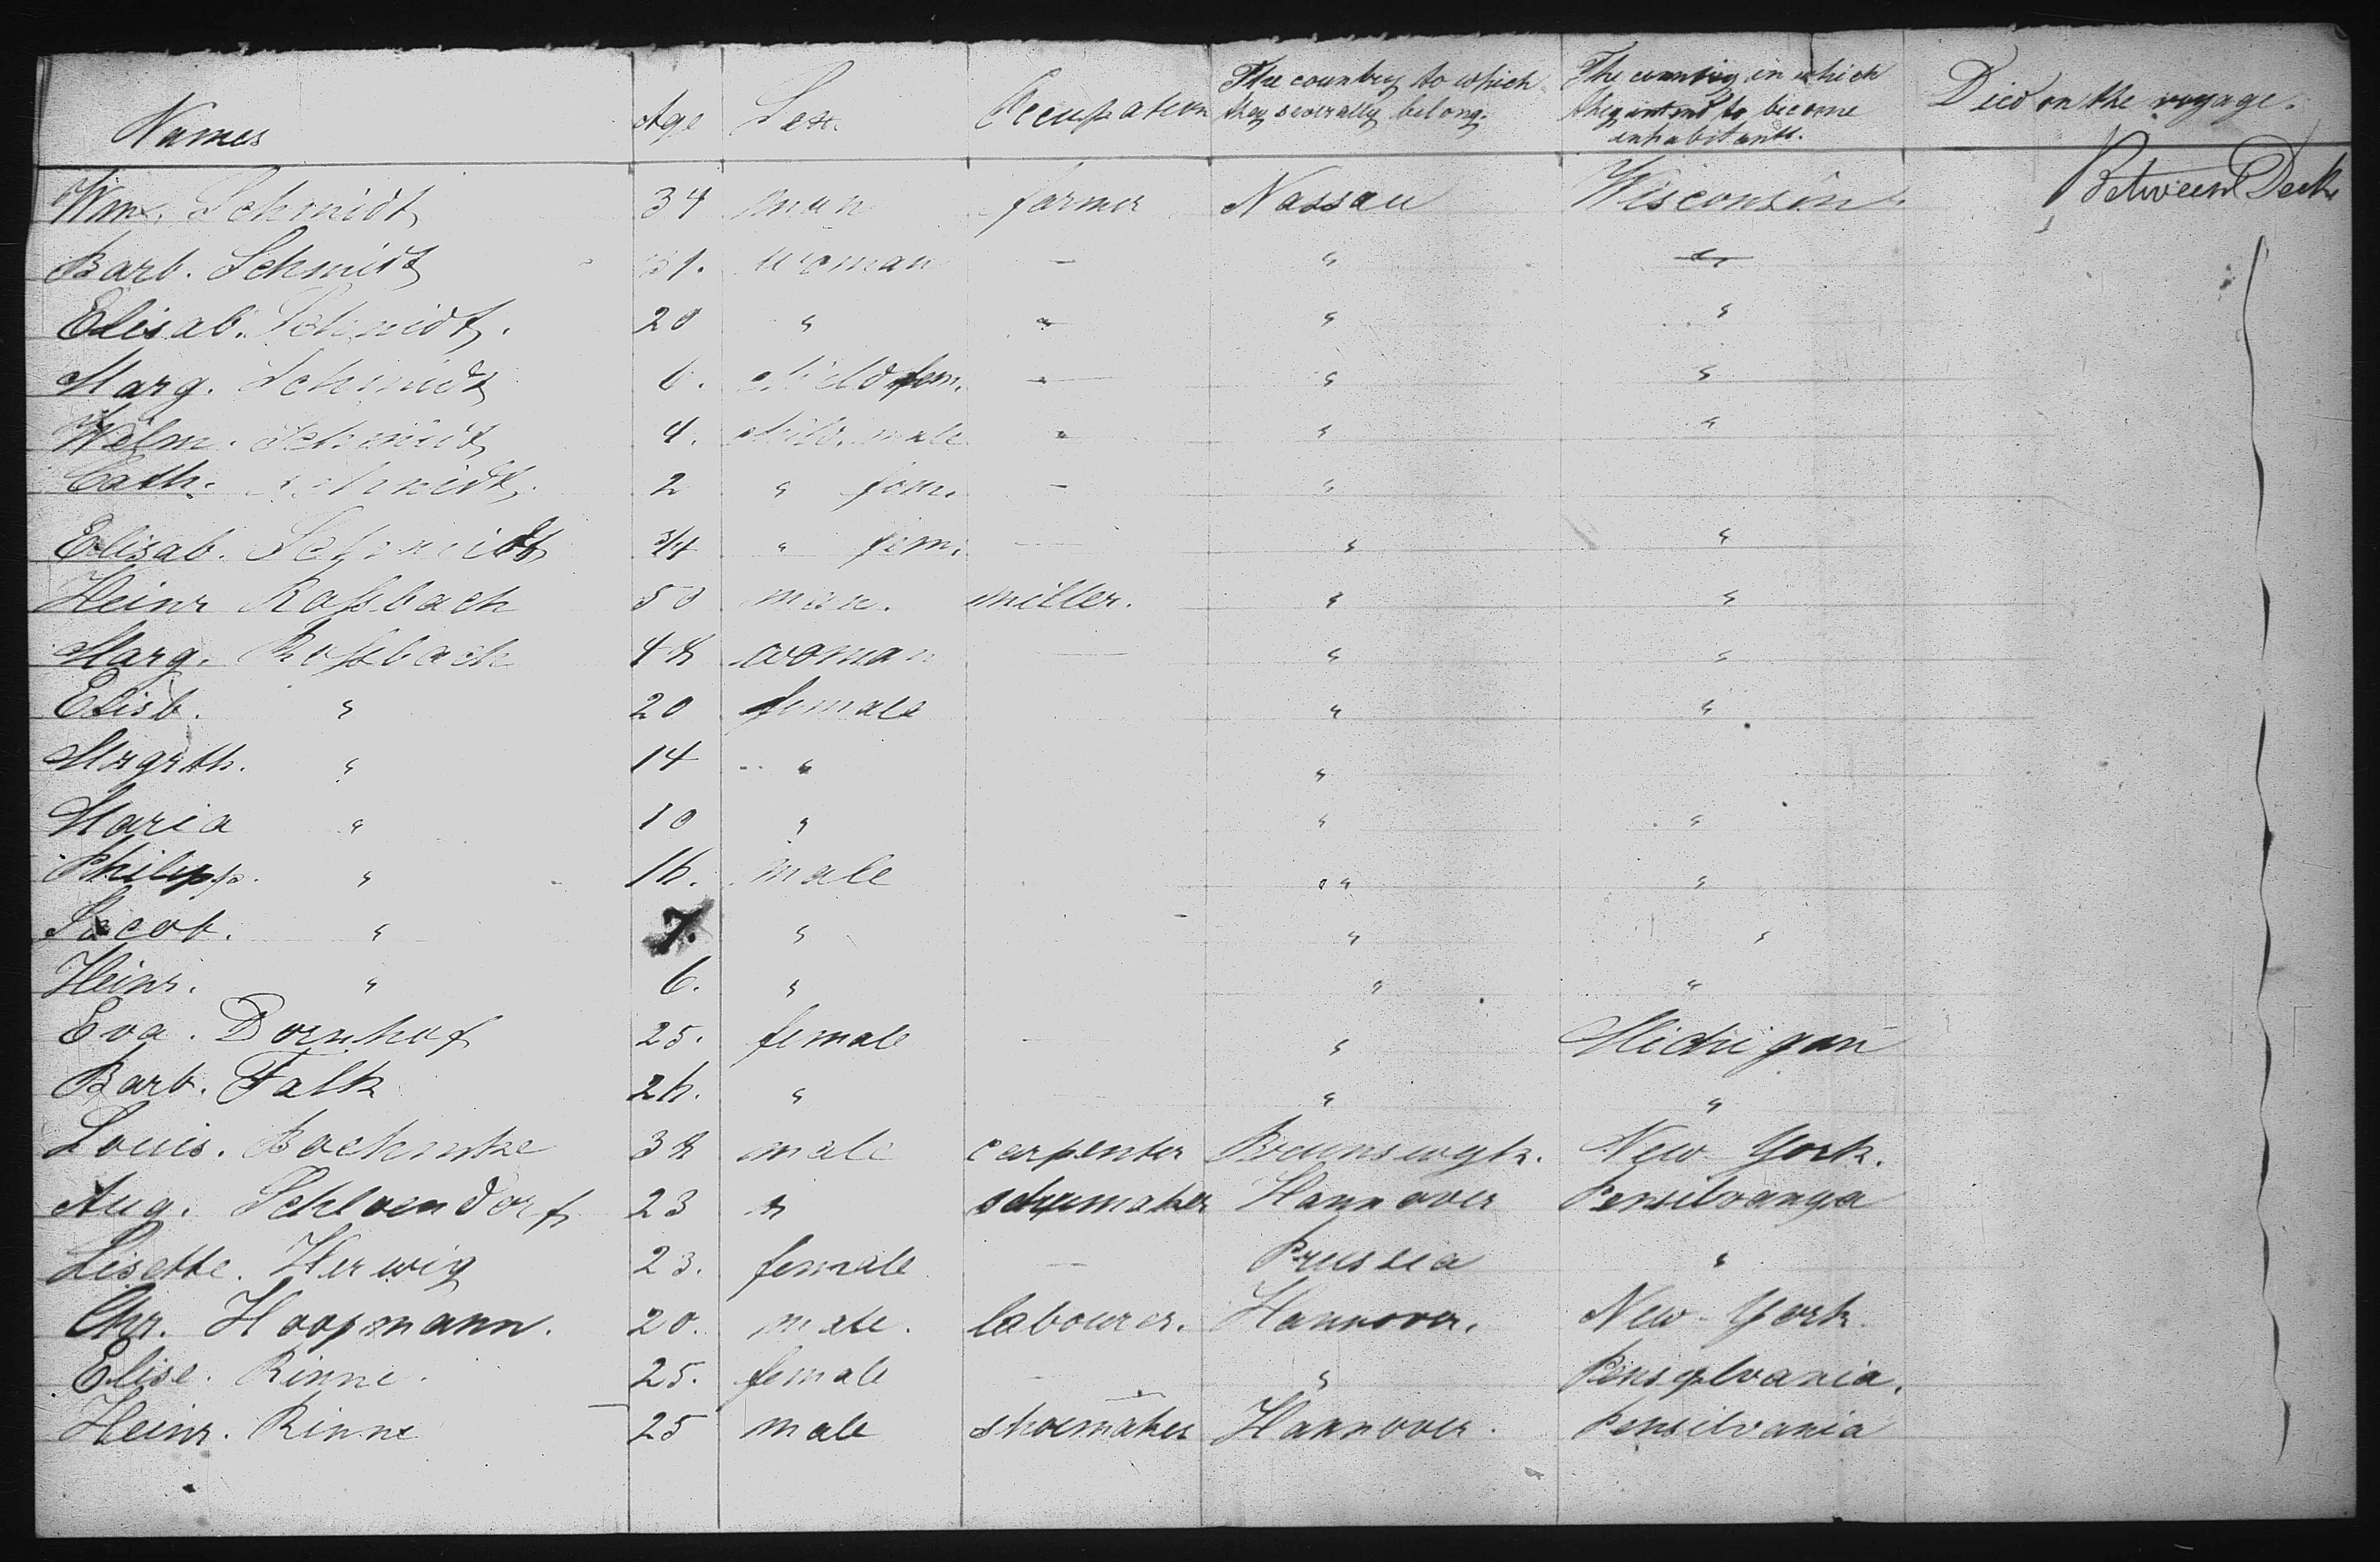 Names Age Sex. Occupation The country to which they severally belong. The country in which they intend to become inhabitants. Died on the voyage.
Wm. Schmidt 34 man farmer Nassau Wisconsin. Between Deck
Barb. Schmidt 31. woman - " "
Elisab. Schmidt. 20 " - " "
Marg. Schmidt 6. child fem. - " "
Wilm. Schmidt 4. child. male - " "
Cath. Schmidt. 2 " fem. - "
Elisab. Schmidt 3/4 " fem. - " "
Heinr Roßbach 50 man. miller. " "
Marg. Roßbach 48 woman - " "
Elisb. " 20 female " "
Mrgrth. " 14 " "
Maria " 10 " " "
Philipp. " 16. male " "
Jacob. " 7. " " "
Heinr. " 6. " " "
Eva. Dornhof 25. female - " Michigan
Barb. Falk 26. " " "
Louis. 38 male carpenter Braunswgk. New York.
Aug. Schloendorf 23 " schumaker Hannover Pensilvanya
Lisette. Herwig 23. female - Prussia "
Chr. Hoopmann. 20. male. labourer. Hannover. New-York.
Elise. Rinne. 25. female - " Pensylvania.
Heinr. Rinne 25 male shoemaker Hannover. Pensilvania